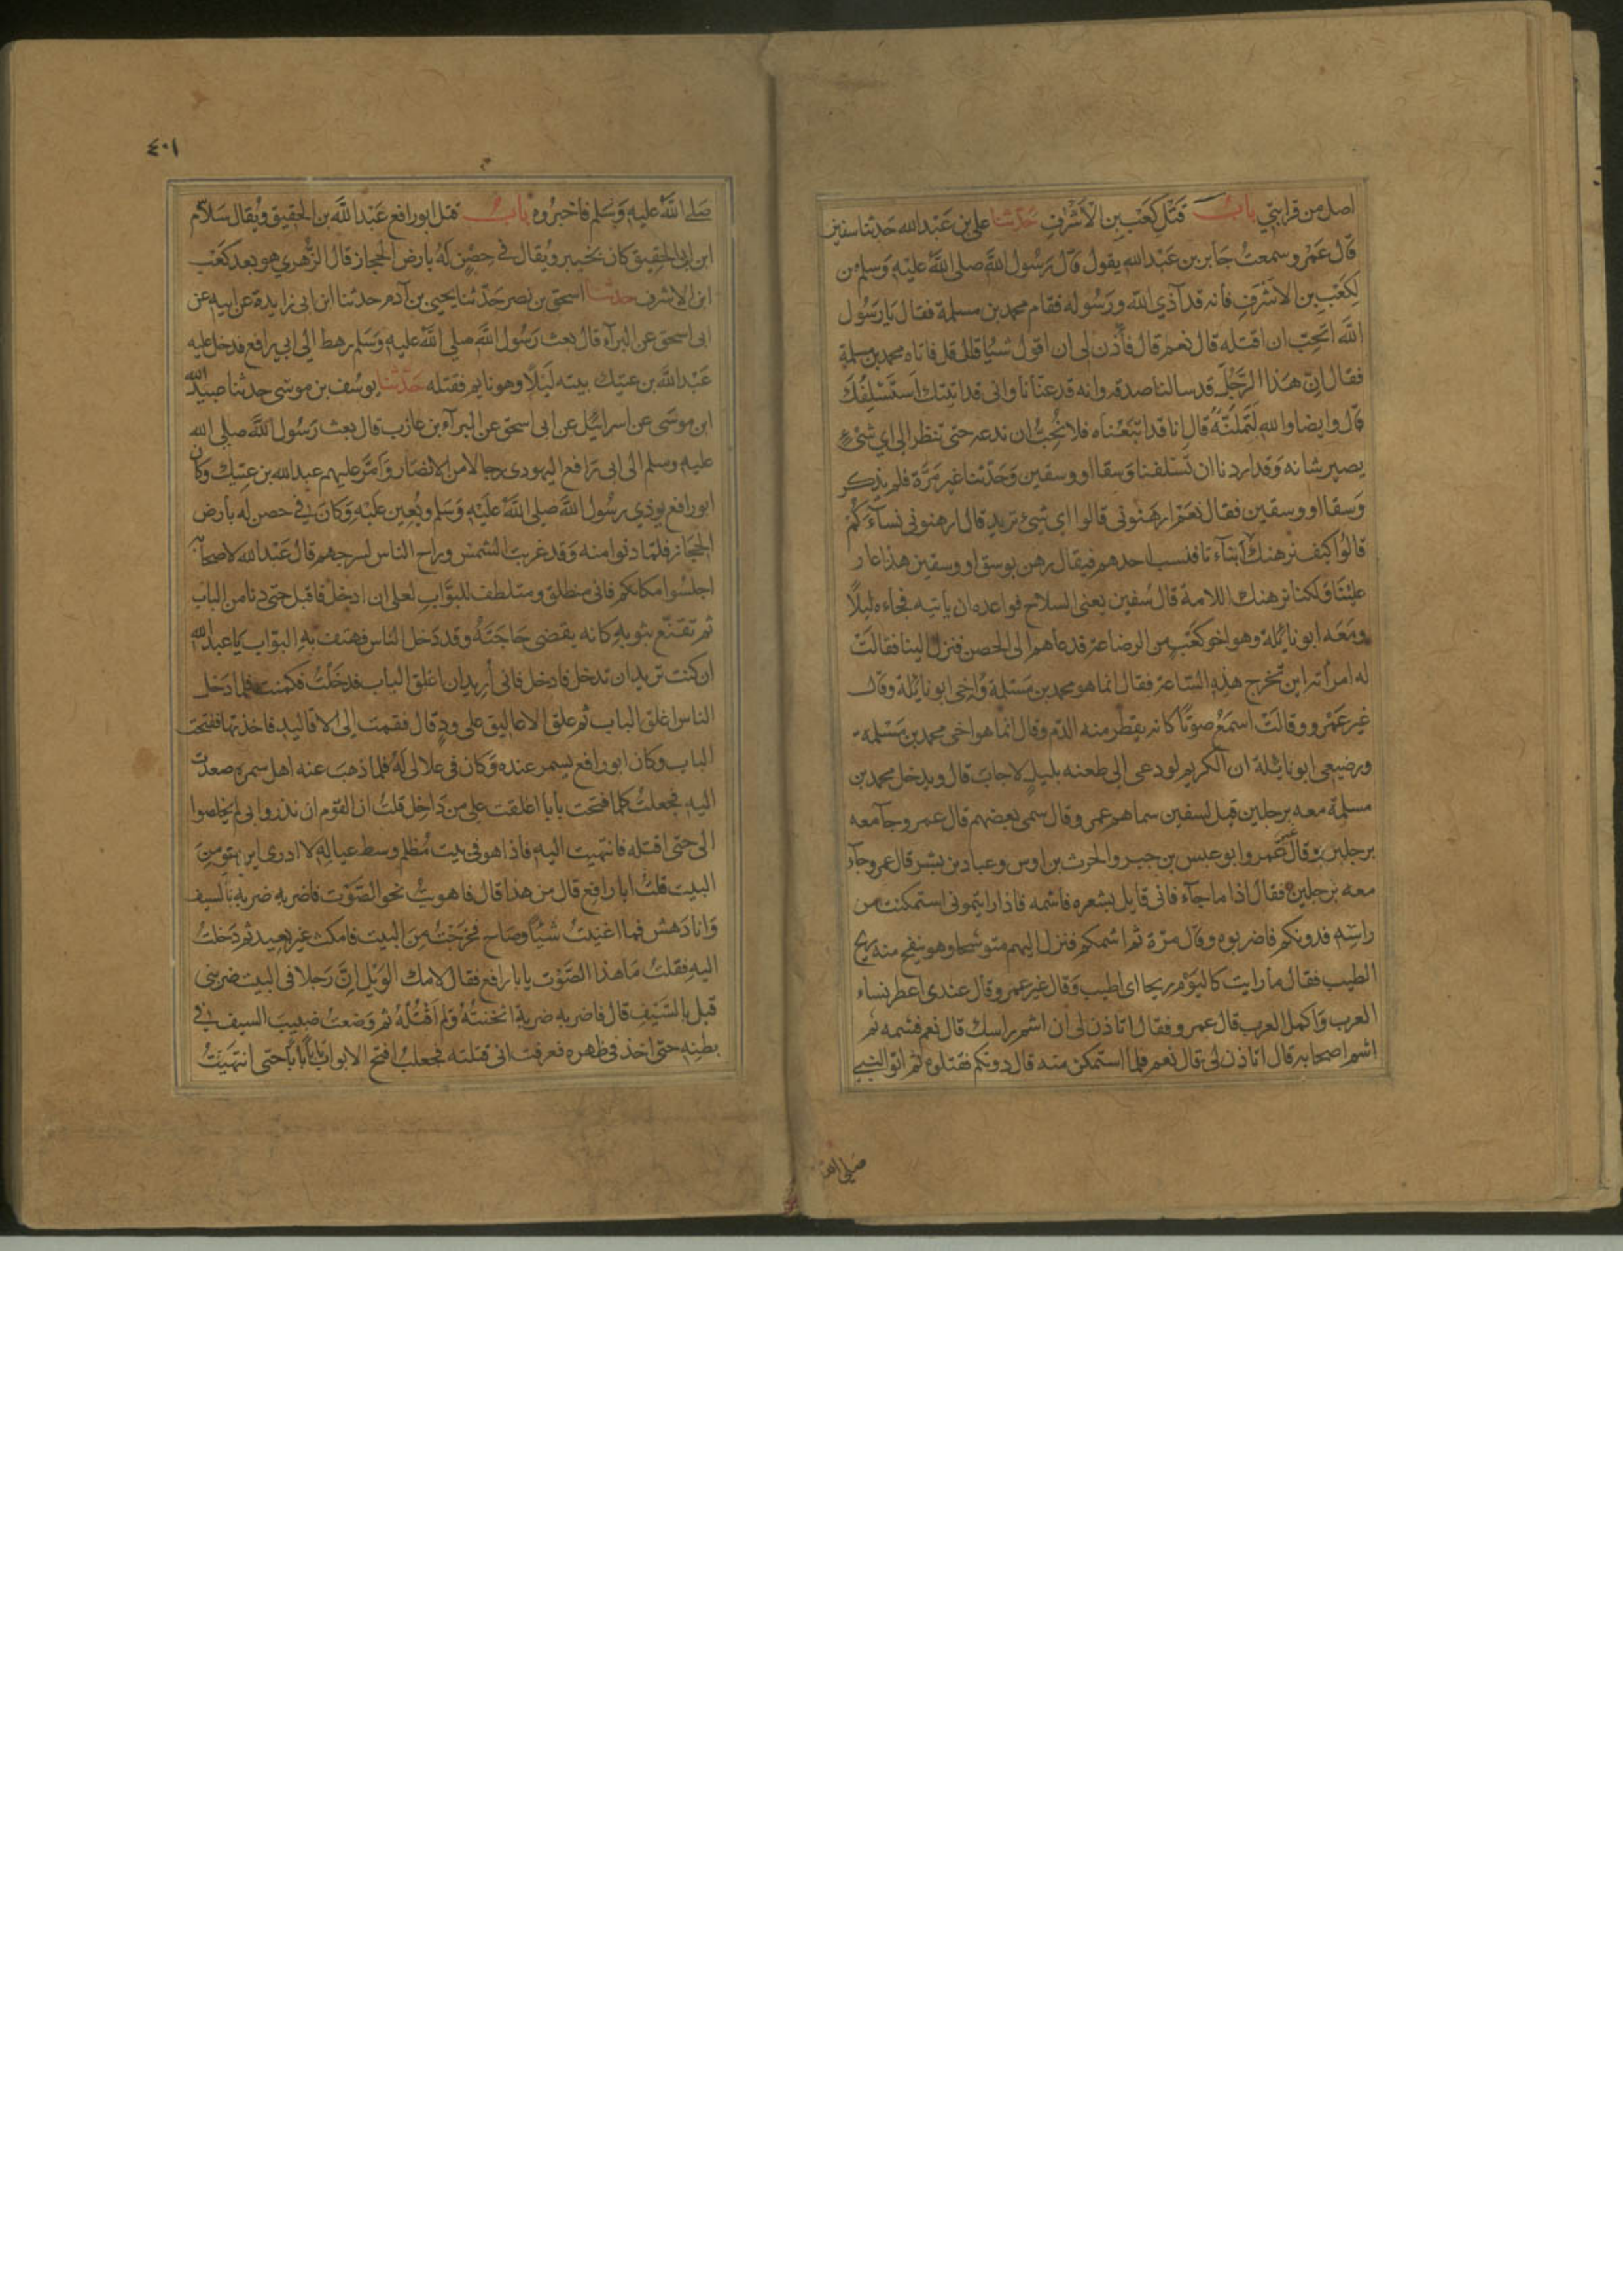 اصل من قرابتي باب قتل كعب بن الاشرف حدثنا علي بن عبد الله حدثنا سفين
قال عمرو سمعت جابر بن عبد الله يقول قال رسول الله صلى الله عليه وسلم من
لكعب بن الاشرف فانه قد آذي الله ورسوله فقام محمد بن مسلمة فقال يا رسول
الله اتحب ان اقتله قال نعم قال فأذن لي ان اقول شيا قال قل فاتاه محمد بن مسلمة
فقال ان هذا الرجل قد سالنا صدقه وانه قد عنّانا واني قد اتيتك استسلفك
قال وايضا والله لتملنه قال انا قد اتبعناه فلا نحب ان ندعه حتى ننظر الى اي شئ
يصير شانه وقد اردنا ان تسلفنا وسقا او وسقين وحدثنا غير مرة فلم يذكر
وسقا او وسقين فقال نعم ارهنوني قالوا اي شئ تريد قال ارهنوني نسآءكم
قالوا كيف نرهنك ابنآءنا فنسب احدهم فيقال رهن بوسق او وسقين هذا عار
علينا ولكنا نرهنك اللامة قال سفين يعني السلاح فواعده ان ياتيه فجاءه ليلا
ومعه ابو نائلة وهو اخو كعب من الرضاعة فدعاهم الى الحصن فنزل الينا فقالت
له امرأته اين تخرج هذه الساعة فقال انما هو محمد بن مسلمة واخي ابو نائلة وقال
غير عمرو وقالت اسمع صوتا كانه يقطر منه الدم وقال انما هو اخي محمد بن مسلمة
ورضيعي ابو نائلة ان الكريم لو دعي الى طعنه بليل لاجاب قال ويدخل محمد بن
مسلمة معه برجلين قيل لسفين سماهم عمرو قال سمى بعضهم قال عمرو جآ معه
برجلين وقال غير عمرو ابو عبس بن جبر والحرث بن اوس وعباد بن بشر قال عمرو جآء
معه برجلين فقال اذا ما جآء فاني قايل بشعره فاشمه فاذا رايتموني استمكنت من
راسه فدونكم فاضربوه وقال مرة ثم اشمكم فنزل اليهم متوشحا وهو ينفح منه ريح
الطيب فقال ما رايت كاليوم ريحا اى اطيب وقال غير عمرو قال عندي اعطر نساء
العرب واكمل العرب قال عمرو فقال اتاذن لي ان اشم راسك قال نعم فشمه ثم
اشم اصحابه قال اتاذن لي قال نعم فلما استمكن منه قال دونكم فقتلوه ثم اتوا النبي
صلى الله
٤٠١
صلى الله عليه وسلم فاخبروه باب قتل ابو رافع عبد الله بن الحقيق ويقال سلام
ابن ابي الحقيق كان بخيبر ويقال في حصن له بارض الحجاز قال الزهري هو بعد كعب
ابن الاشرف حدثنا اسحق بن نصر حدثنا يحيى بن آدم حدثنا ابن ابي زايدة عن ابيه عن
ابى اسحق عن البرآء قال بعث رسول الله صلى الله عليه وسلم رهط الى ابي رافع فدخل عليه
عبد الله بن عتيك بيته ليلا وهو نايم فقتله حدثنا يوسف بن موسى حدثنا عبيد الله
ابن موسى عن اسرائيل عن ابى اسحق عن البرآء بن عازب قال بعث رسول الله صلى الله
عليه وسلم الى ابى رافع اليهودى رجالا من الانصار وامّر عليهم عبد الله بن عتيك وكان
ابو رافع يوذي رسول الله صلى الله عليه وسلم ويعين عليه وكان في حصن له بارض
الحجاز فلما دنوا منه وقد غربت الشمس وراح الناس لسرحهم قال عبد الله لاصحابه
اجلسوا مكانكم فانى منطلق ومتلطف للبواب لعلي ان ادخل فاقبل حتى دنا من الباب
ثم تقنع بثوبه كانه يقضى حاجته وقد دخل الناس فهتف به البواب يا عبد الله
ان كنت تريد ان تدخل فادخل فانى أريد ان اغلق الباب فدخلت فكمنت فلما دخل
الناس اغلق الباب ثم علق الاعاليق على ود قال فقمت الى الاقاليد فاخذتها ففتحت
الباب وكان ابو رافع يسمر عنده وكان فى علالى له فلما ذهب عنه اهل سمره صعدت
اليه فجعلت كلما فتحت بابا اغلقت على من داخل قلت ان القوم ان نذروا بى لم يخلصوا
الى حتى اقتله فانتهيت اليه فاذا هو فى بيت مظلم وسط عياله لا ادرى اين هو من
البيت قلت ابا رافع قال من هذا قال فاهويت نحو الصوت فاضربه ضربة بالسيف
وانا دهش فما اغنيت شيا وصاح فخرجت من البيت فامكث غير بعيد ثم دخلت
اليه فقلت ما هذا الصوت يا با رافع فقال لامك الويل ان رجلا فى البيت ضربنى
قبل بالسيف قال فاضربه ضربة اثخنته ولم اقتله ثم وضعت ضبيب السيف في
بطنه حتى اخذ في ظهره فعرفت انى قتلته فجعلت افتح الابواب بابا بابا حتى انتهيت